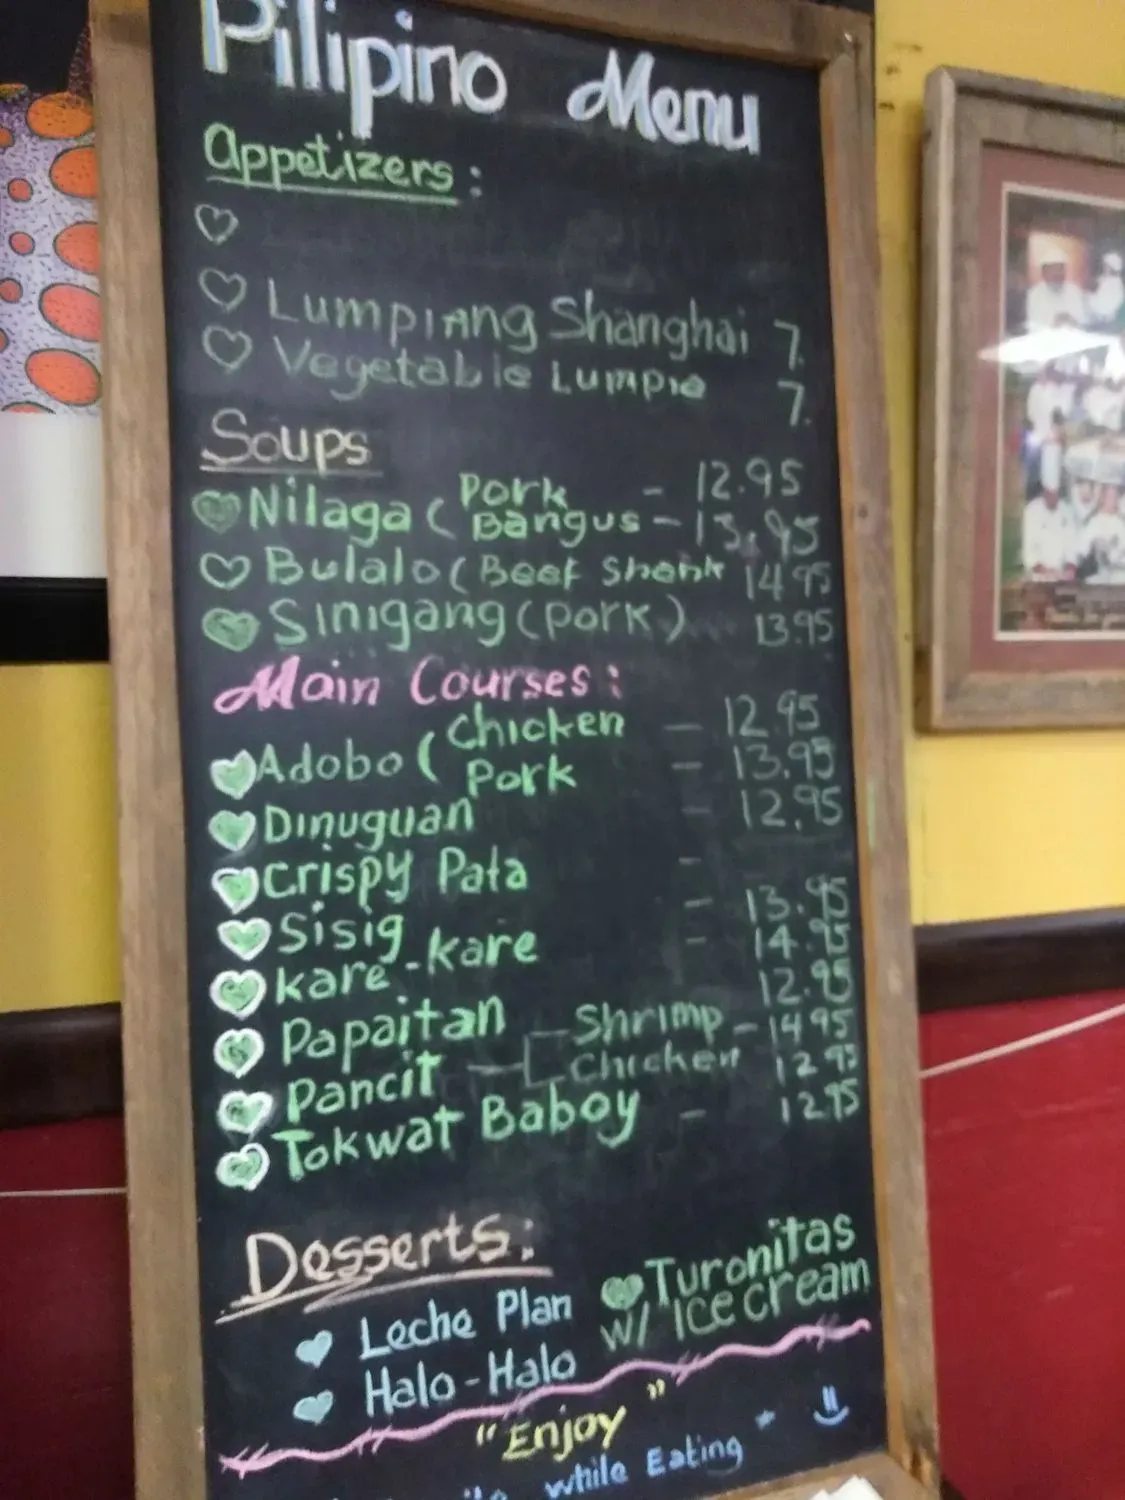 Pilipino Menu
Appetizers:
Lumpiang Shanghai 7.
Vegetable Lumpia 7.
Soups
Nilaga ( Pork - 12.95
Bangus - 13.95
Bulalo ( Beef Shank 14.95
Sinigang (Pork) 13.95
Main Courses:
Adobo ( Chicken - 12.95
Pork - 13.95
Dinuguan - 12.95
Crispy Pata -
Sisig - 13.95
Kare-Kare - 14.95
Papaitan 12.95
Pancit - Shrimp - 14.95
Chicken 12.95
Tokwat Baboy - 12.95
Desserts:
Leche Plan
Halo-Halo
Turonitas
w/ Ice cream
"Enjoy"
while Eating